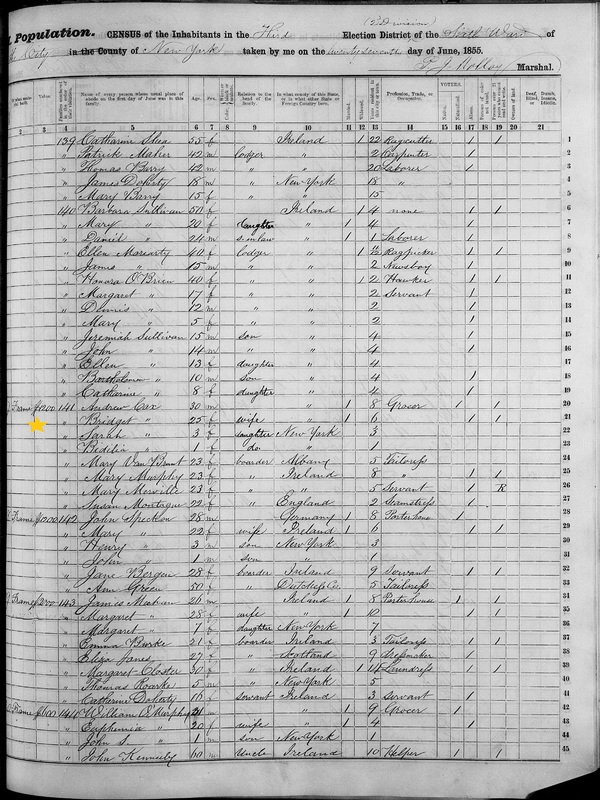 Population. CENSUS of the Inhabitants in the Third Election District of the Sixth Ward of
(2d Division)
City in the County of New York taken by me on the twenty seventh day of June, 1855.
Marshal.
Name of every person whose usual place of abode on the first day of June was in this family. Age. Sex. Relation to the head of the family. In what county of this State, or in what other State or Foreign Country born. Married. Widowed. Profession, Trade, or Occupation. VOTERS. Native. Naturalized. Aliens. Owners of land
2 3 4 5 6 7 8 9 10 11 12 13 14 15 16 17 18 19 20 21
139 Catharine Shea 55 f Ireland 1 22 Ragcutter 1 1 1
" Patrick Maher 42 m lodger " 2 Carpenter 1 2
" Thomas Barry 42 m " " 20 Laborer 1 3
" James Doherty 18 m " New York 18 " 4
" Mary Barry 15 f " " 15 5
140 Barbara Sullivan 50 f Ireland 1 4 none 1 1 6
" Mary " 20 f daughter " 1 4 1 7
" Daniel " 24 m s. in law " 1 1 Laborer 1 8
" Ellen Moriarty 40 f lodger " 1 1/2 Ragpicker 1 1 9
" James " 15 m " " 2 Newsboy 1 10
" Honora O'Brien 40 f " " 1 2 Hawker 1 1 11
" Margaret " 17 f " " 2 Servant 1 12
" Dennis " 12 m " " 2 1 13
" Mary " 5 f " " 2 1 14
" Jeremiah Sullivan 15 m son " 4 1 15
" John " 14 m " " 4 1 16
" Ellen " 13 f daughter " 4 1 17
" Bartholomew " 10 m son " 4 1 18
" Catharine " 8 f daughter " 4 1 19
Frame 1200 141 Andrew Carr 30 m " 1 8 Grocer 1 1 20
" Bridget " 25 f wife " 1 6 1 1 21
" Sarah " 3 f daughter New York 3 22
" Bedelia " 1 f do " 1 23
" Mary Van Brunt 23 f boarder Albany 5 Tailoress 24
" Mary Murphy 23 f " Ireland 8 " 1 1 25
" Mary Merville 23 f " " 5 Servant 1 R 26
" Susan Montague 22 f " England 2 Seamstress 1 27
Frame 142 John 28 m Germany 1 8 Porterhouse 1 28
" Mary " 22 f wife Ireland 1 6 1 1 29
" Henry " 3 m son New York 3 30
" John " 1 m son " 1 31
" Jane Bergen 28 f boarder Ireland 9 Servant 1 1 32
" Ann Green 50 f " Dutchess Co. 5 Tailoress 33
Frame 143 James Meehan 26 m Ireland 1 8 Porterhouse 1 1 34
" Margaret " 28 f wife " 1 10 1 1 35
" Margaret " 7 f daughter New York 7 36
" Emma Burke 21 f boarder Ireland 3 Tailoress 1 1 37
" Eliza Jones 27 f " Scotland 9 1 38
" Margaret Closter 30 f " Ireland 1 14 Laundress 1 1 39
" Thomas Roarke 5 m " New York 5 40
" Catharine Doherty 16 f servant Ireland 3 Servant 1 41
Frame 144 William O. Murphy 21 m " 1 9 Grocer 1 42
" Euphemia " 20 f wife " 1 4 1 43
" John J. " 1 m son New York 1 44
" John Kennedy 60 m Uncle Ireland 10 Helper 1 1 45